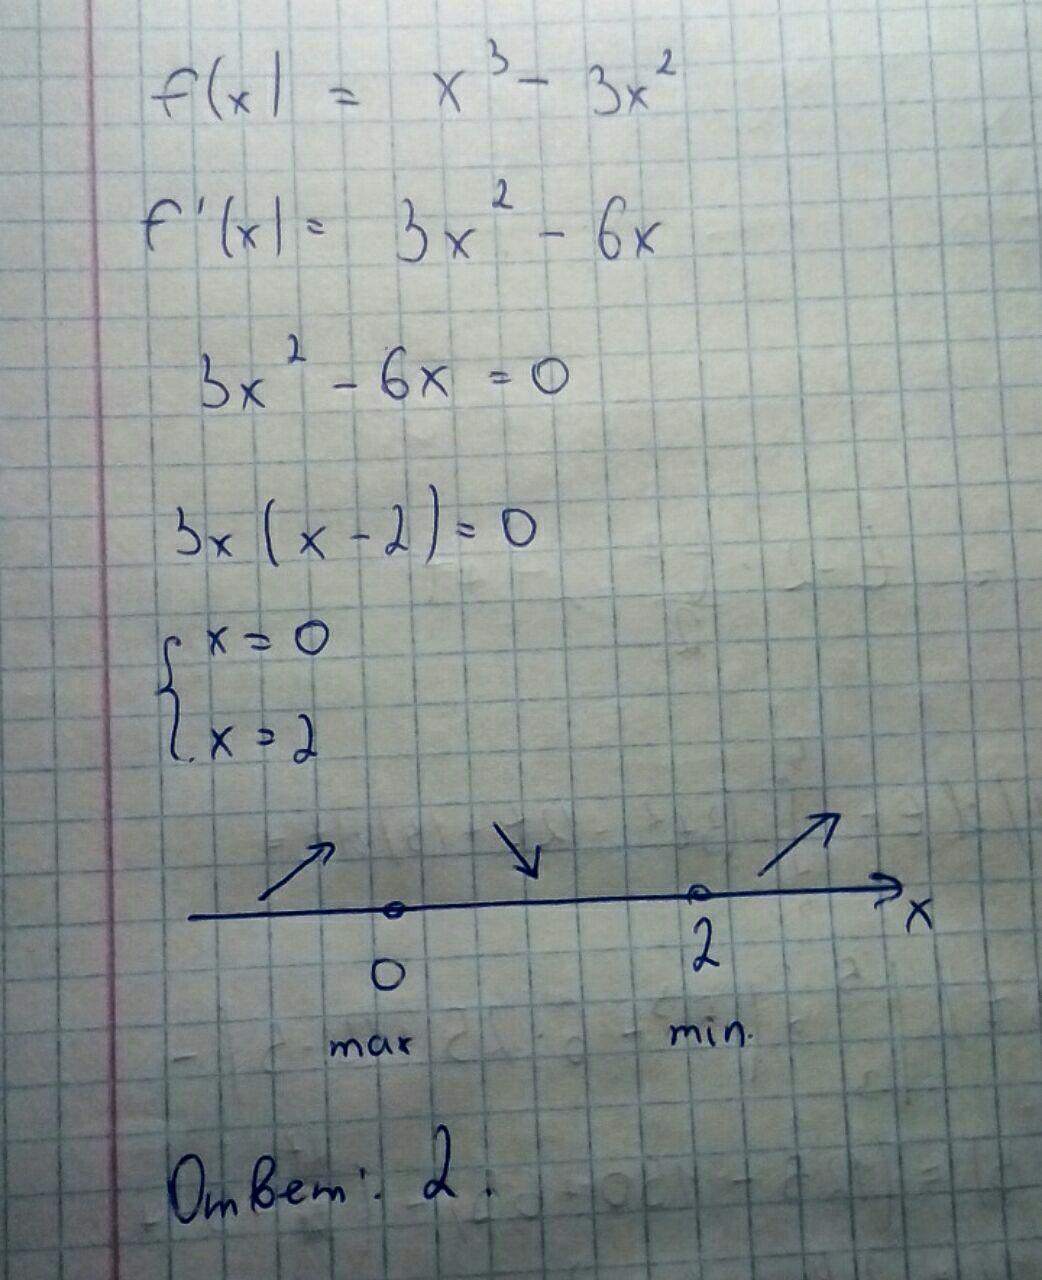 f(x) = x³ - 3x²
f'(x) = 3x² - 6x
3x² - 6x = 0
3x(x - 2) = 0
{ x = 0
x = 2
x
0 2
max min.
Ответ: 2.